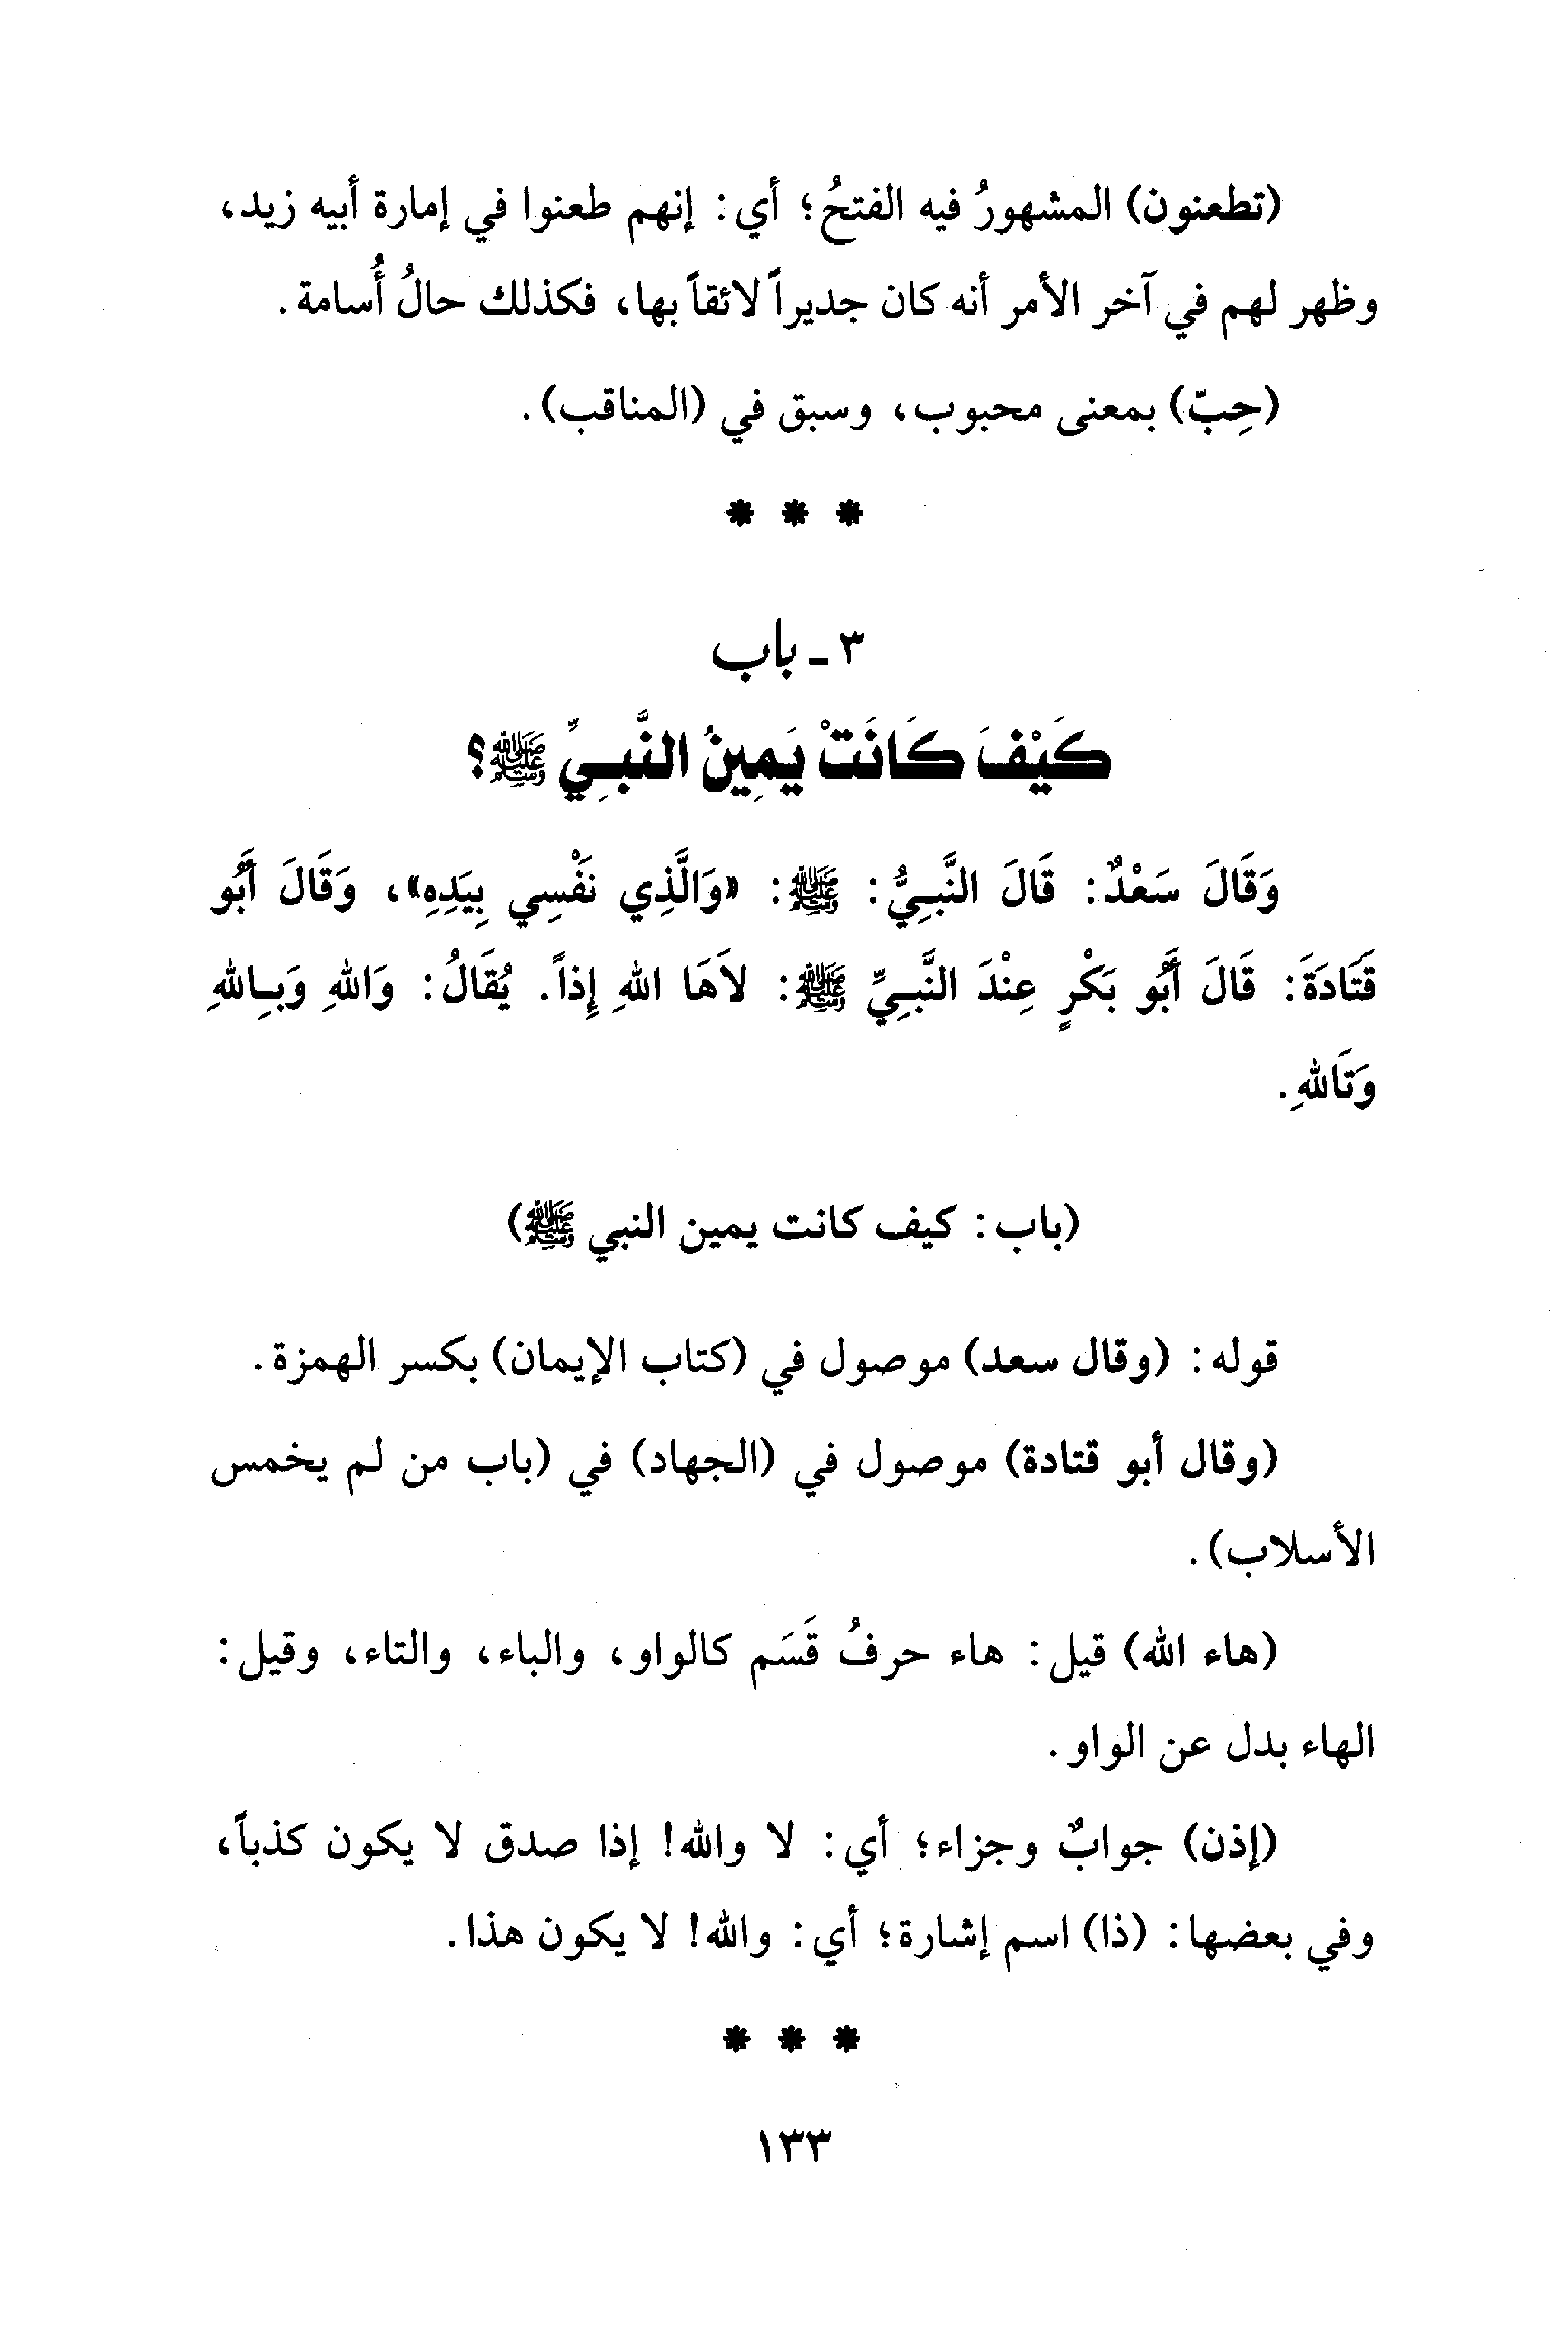 (تطعنون) المشهورُ فيه الفتحُ؛ أي: إنهم طعنوا في إمارة أبيه زيد،
وظهر لهم في آخر الأمر أنه كان جديراً لائقاً بها، فكذلك حالُ أُسامة.
(حِبّ) بمعنى محبوب، وسبق في (المناقب).
* * *
٣ - باب
كَيْفَ كَانَتْ يَمِينُ النَّبِيِّ ﷺ؟
وَقَالَ سَعْدٌ: قَالَ النَّبِيُّ: ﷺ: «وَالَّذِي نَفْسِي بِيَدِهِ»، وَقَالَ أَبُو
قَتَادَةَ: قَالَ أَبُو بَكْرٍ عِنْدَ النَّبِيِّ ﷺ: لاَهَا اللهِ إِذاً. يُقَالُ: وَاللهِ وَبِاللهِ
وَتَاللهِ.
(باب: كيف كانت يمين النبي ﷺ)
قوله: (وقال سعد) موصول في (كتاب الإيمان) بكسر الهمزة.
(وقال أبو قتادة) موصول في (الجهاد) في (باب من لم يخمس
الأسلاب).
(هاء الله) قيل: هاء حرفُ قَسَم كالواو، والباء، والتاء، وقيل:
الهاء بدل عن الواو.
(إذن) جوابٌ وجزاء؛ أي: لا والله! إذا صدق لا يكون كذباً،
وفي بعضها: (ذا) اسم إشارة؛ أي: والله! لا يكون هذا.
* * *
١٣٣